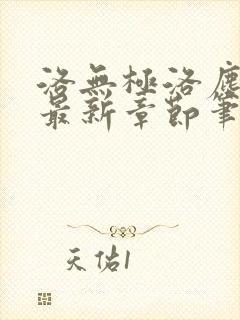 洛無極洛塵
最新章節筆
天佑1